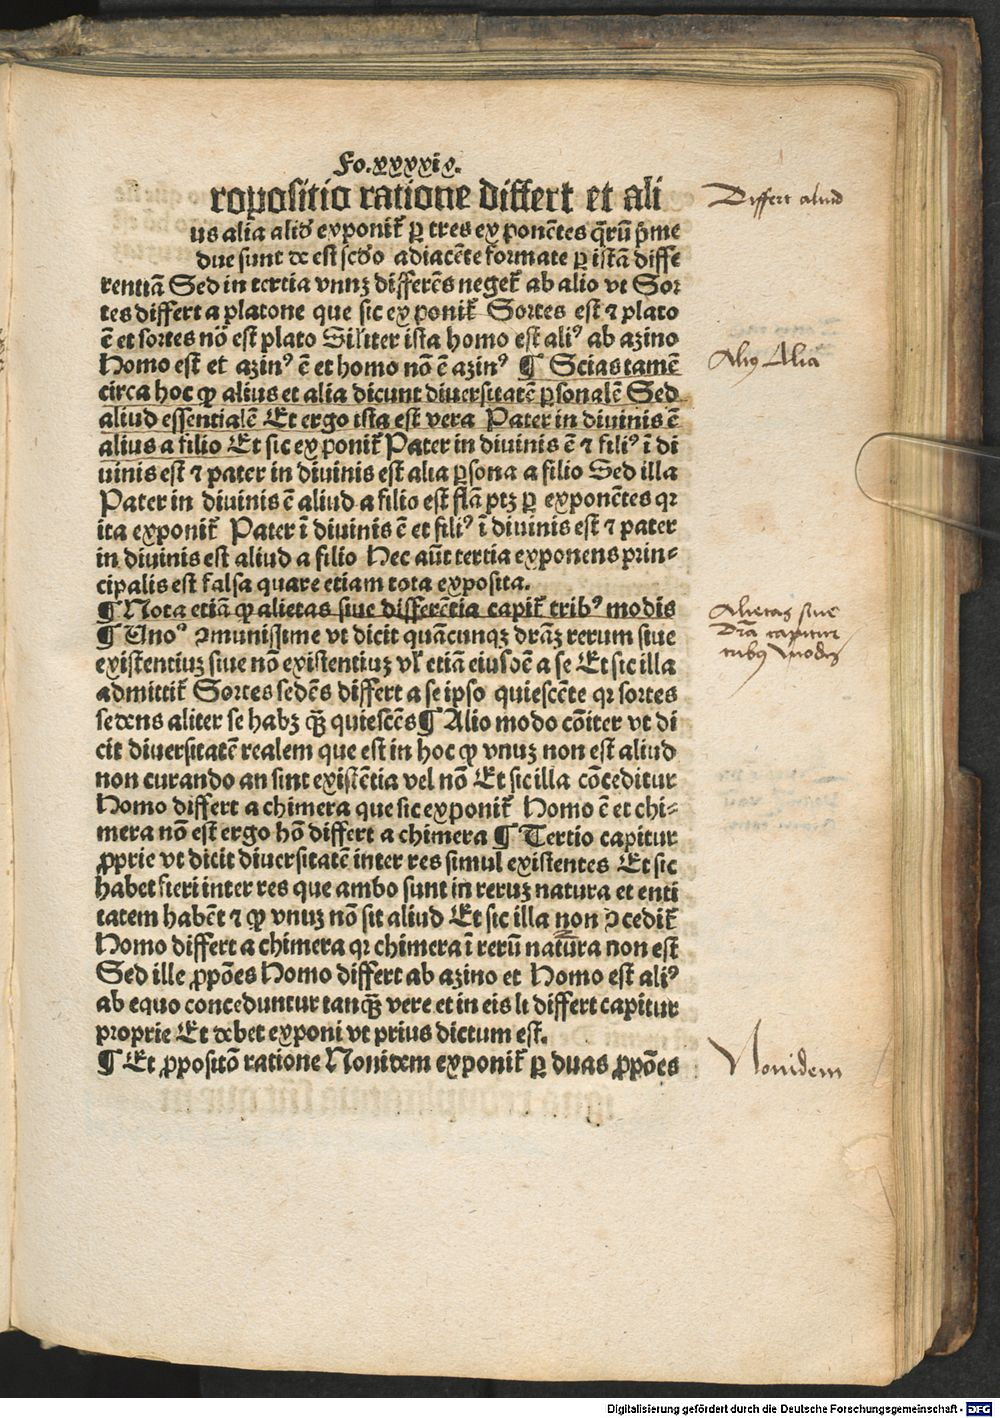 Fo.xxxxix.
ropositio ratione differt et ali
us alia aliḋ exponit᷑ ꝑ tres exponẽtes q̃rũ p̃me
due sunt de est scḋo adiacẽte formate ꝑ istã diffe
rentiã Sed in tertia vnnꝫ differẽs neget᷑ ab alio vt Sor
tes differt a platone que sic exponit᷑ Sortes est ⁊ plato
ẽ et sortes nõ est plato Sil̃iter ista homo est aliꝰ ab azino
Homo est et azinꝰ ẽ et homo nõ ẽ azinꝰ ¶ Scias tamẽ
circa hoc ꝙ alius et alia dicunt diuersitatẽ ꝑsonalẽ Sed
aliud essentialẽ Et ergo ista est vera Pater in diuinis ẽ
alius a filio Et sic exponit᷑ Pater in diuinis ẽ ⁊ filiꝰ ĩ di
uinis est ⁊ pater in diuinis est alia ꝑsona a filio Sed illa
Pater in diuinis ẽ aliud a filio est fl̃a ptꝫ ꝑ exponẽtes qꝛ
ita exponit᷑ Pater ĩ diuinis ẽ et filiꝰ ĩ diuinis est ⁊ pater
in diuinis est aliud a filio Hec aũt tertia exponens prin⸗
cipalis est falsa quare etiam tota exposita.
¶ Nota etiã ꝙ alietas siue differẽtia capit᷑ tribꝰ modis
¶ Unoº ↄmunissime vt dicit quãcunqꝫ dr̃aꝫ rerum siue
existentiuꝫ siue nõ existentiuꝫ vl̃ etiã eiusdẽ a se Et sic illa
admittit᷑ Sortes sedẽs differt a se ipso quiescẽte qꝛ sortes
sedens aliter se habꝫ q̃ꝫ quiescẽs ¶ Alio modo cõiter vt di
cit diuersitatẽ realem que est in hoc ꝙ vnuꝫ non est aliud
non curando an sint existẽtia vel nõ Et sic illa cõceditur
Homo differt a chimera que sic exponit᷑ Homo ẽ et chi⸗
mera nõ est ergo hõ differt a chimera ¶ Tertio capitur
ꝓprie vt dicit diuersitatẽ inter res simul existentes Et sic
habet fieri inter res que ambo sunt in reruꝫ natura et enti
tatem habẽt ⁊ ꝙ vnuꝫ nõ sit aliud Et sic illa non ↄcedit᷑
Homo differt a chimera qꝛ chimera ĩ rerũ natura non est
Sed ille ꝓpões Homo differt ab azino et Homo est aliꝰ
ab equo conceduntur tanq̃ꝫ vere et in eis ly differt capitur
proprie Et debet exponi vt prius dictum est.
¶ Et ꝓpositõ ratione Nonidem exponit᷑ ꝑ duas ꝓpões
Differt aliud
Aliꝰ Alia
Alietas siue
Dr̃ia capitur
tribꝰ modis
Nonidem
Digitalisierung gefördert durch die Deutsche Forschungsgemeinschaft - DFG